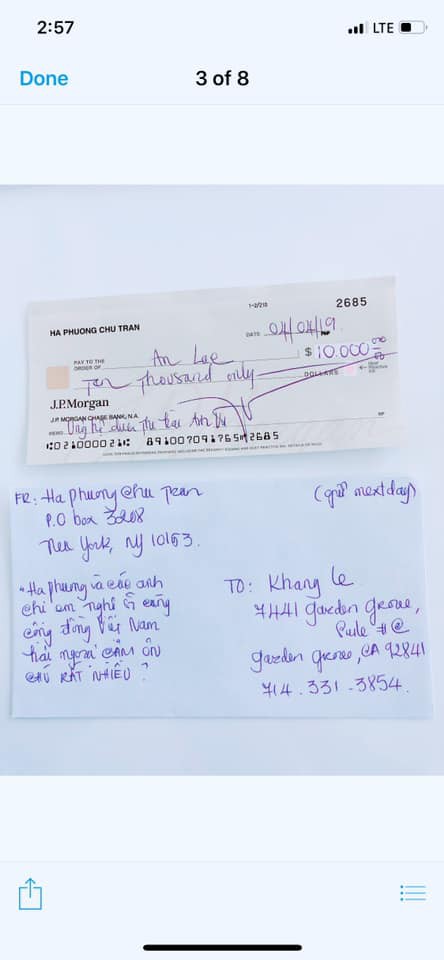 2:57
LTE
Done
3 of 8
1-2/210
2685
HA PHUONG CHU TRAN
DATE 04/04/19
PAY TO THE
ORDER OF
An Lac
$ 10.000
Ten Thousand only
DOLLARS
J.P.Morgan
JP MORGAN CHASE BANK, N.A.
MEMO
Ủng hộ
MP
FR: Ha Phuong Chu Tran
P.O box 3208
New York, NY 10163.
(gửi next day)
* Ha Phuong và các anh
chị em nghệ sĩ cùng
cộng đồng Việt Nam
hải ngoại CÁM ƠN
CHÚ RẤT NHIỀU
TO: Khang Le
7441 garden grove,
garden grove, CA 92841
714.331-3854.